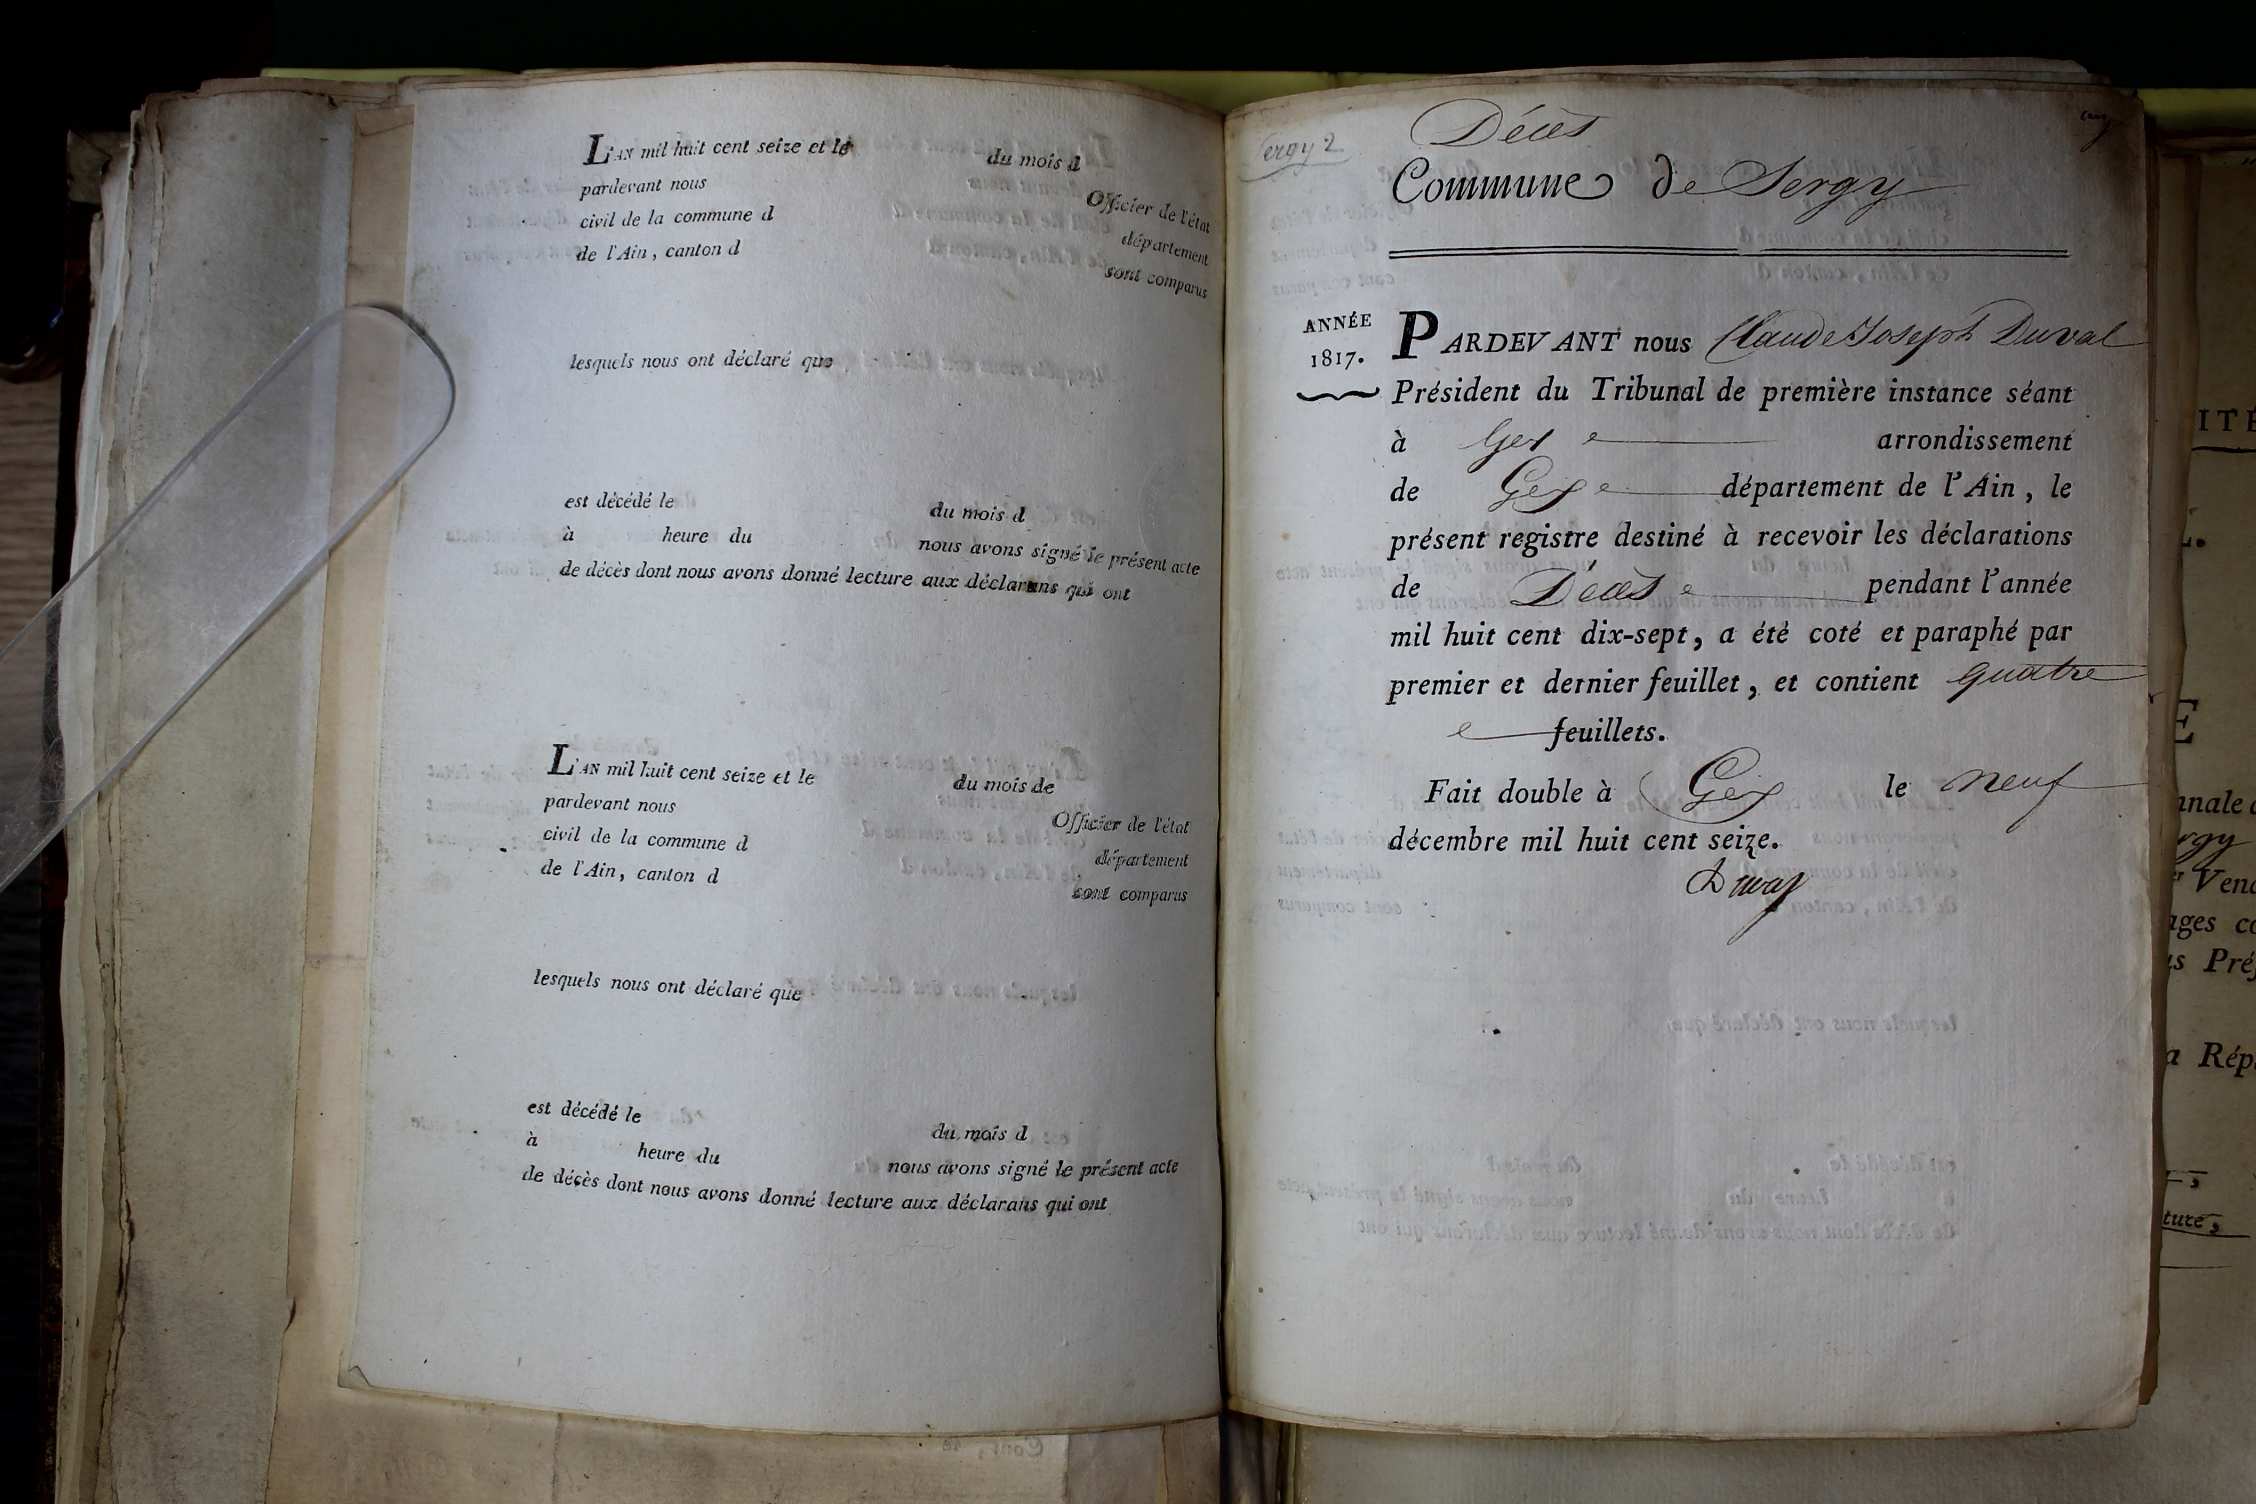 L'AN mil huit cent seize et le du mois d
pardevant nous Officier de l'état
civil de la commune d département
de l'Ain, canton d sont comparus
lesquels nous ont déclaré que
est décédé le du mois d
à heure du nous avons signé le présent acte
de décès dont nous avons donné lecture aux déclarans qui ont
L'AN mil huit cent seize et le du mois de
pardevant nous Officier de l'état
civil de la commune d département
de l'Ain, canton d sont comparus
lesquels nous ont déclaré que
est décédé le du mois d
à heure du nous avons signé le présent acte
de décès dont nous avons donné lecture aux déclarans qui ont
Sergy 2
Décès
Commune de Sergy
ANNÉE
1817.
PARDEVANT nous Claude Joseph Duval
Président du Tribunal de première instance séant
à Gex arrondissement
de Gex département de l'Ain, le
présent registre destiné à recevoir les déclarations
de Décès pendant l'année
mil huit cent dix-sept, a été coté et paraphé par
premier et dernier feuillet, et contient quatre
feuillets.
Fait double à Gex le neuf
décembre mil huit cent seize.
Duval
ITÉ
E
nnale d
rgy
Vend
ages co
us Préf
a Rép
ture,